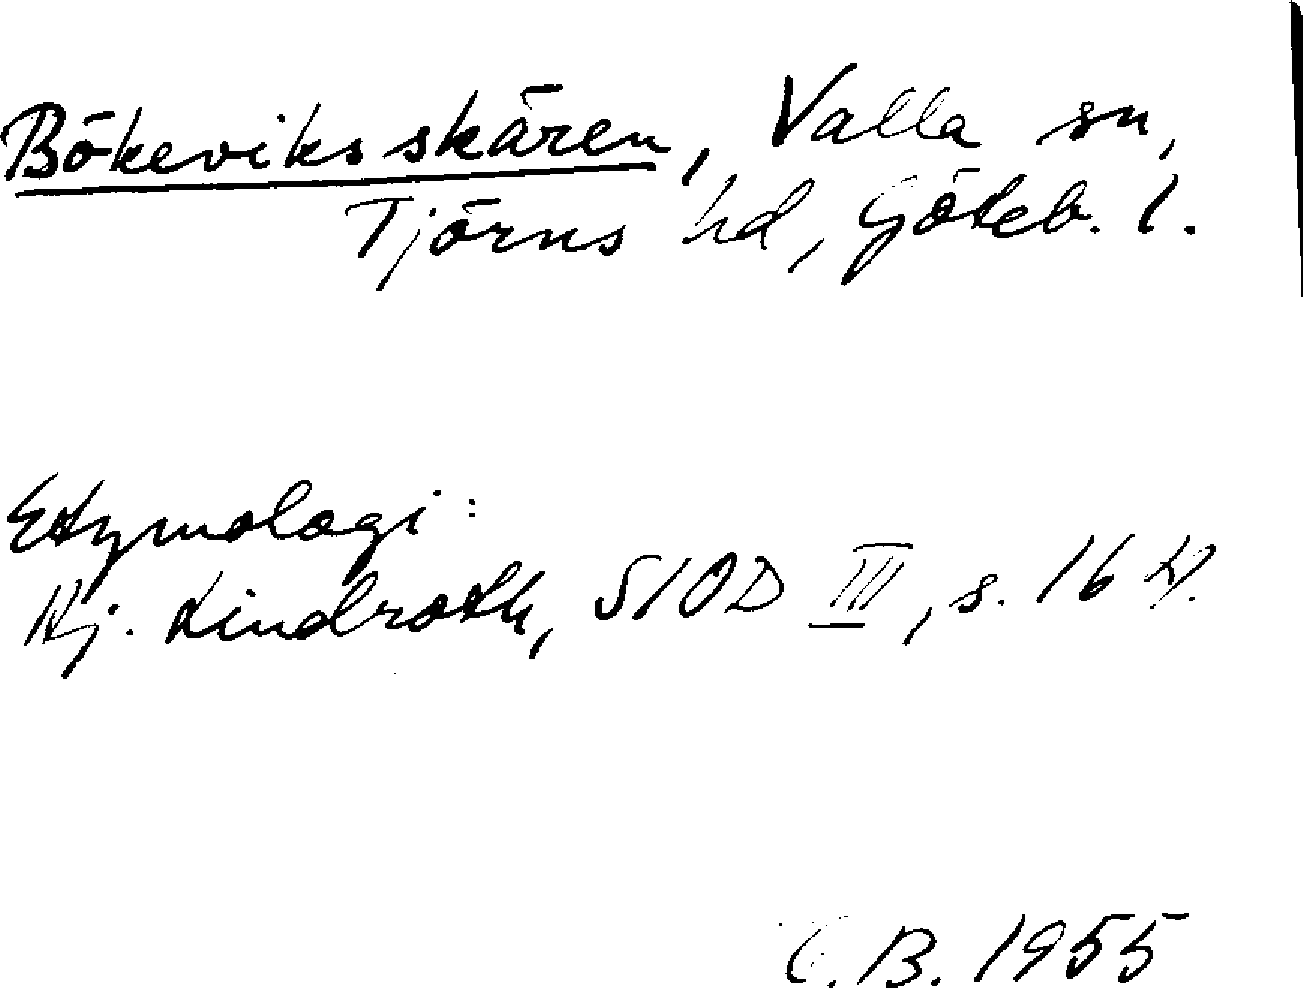 Bökeviksskären, Valla sn,
Tjörns hd, Göteb. l.
Etymologi:
Hj. Lindroth, SIOD III, s. 16
B. 1955